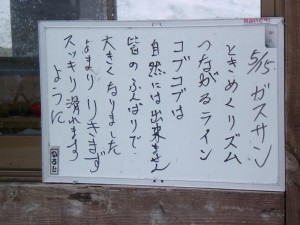 5/15 ガスサン
ときめくリズム
つながるライン
コブコブは
自然には出来ません
皆のふんばりで
大きくなりました
あまり りきまず
スッキリ滑れます
ように